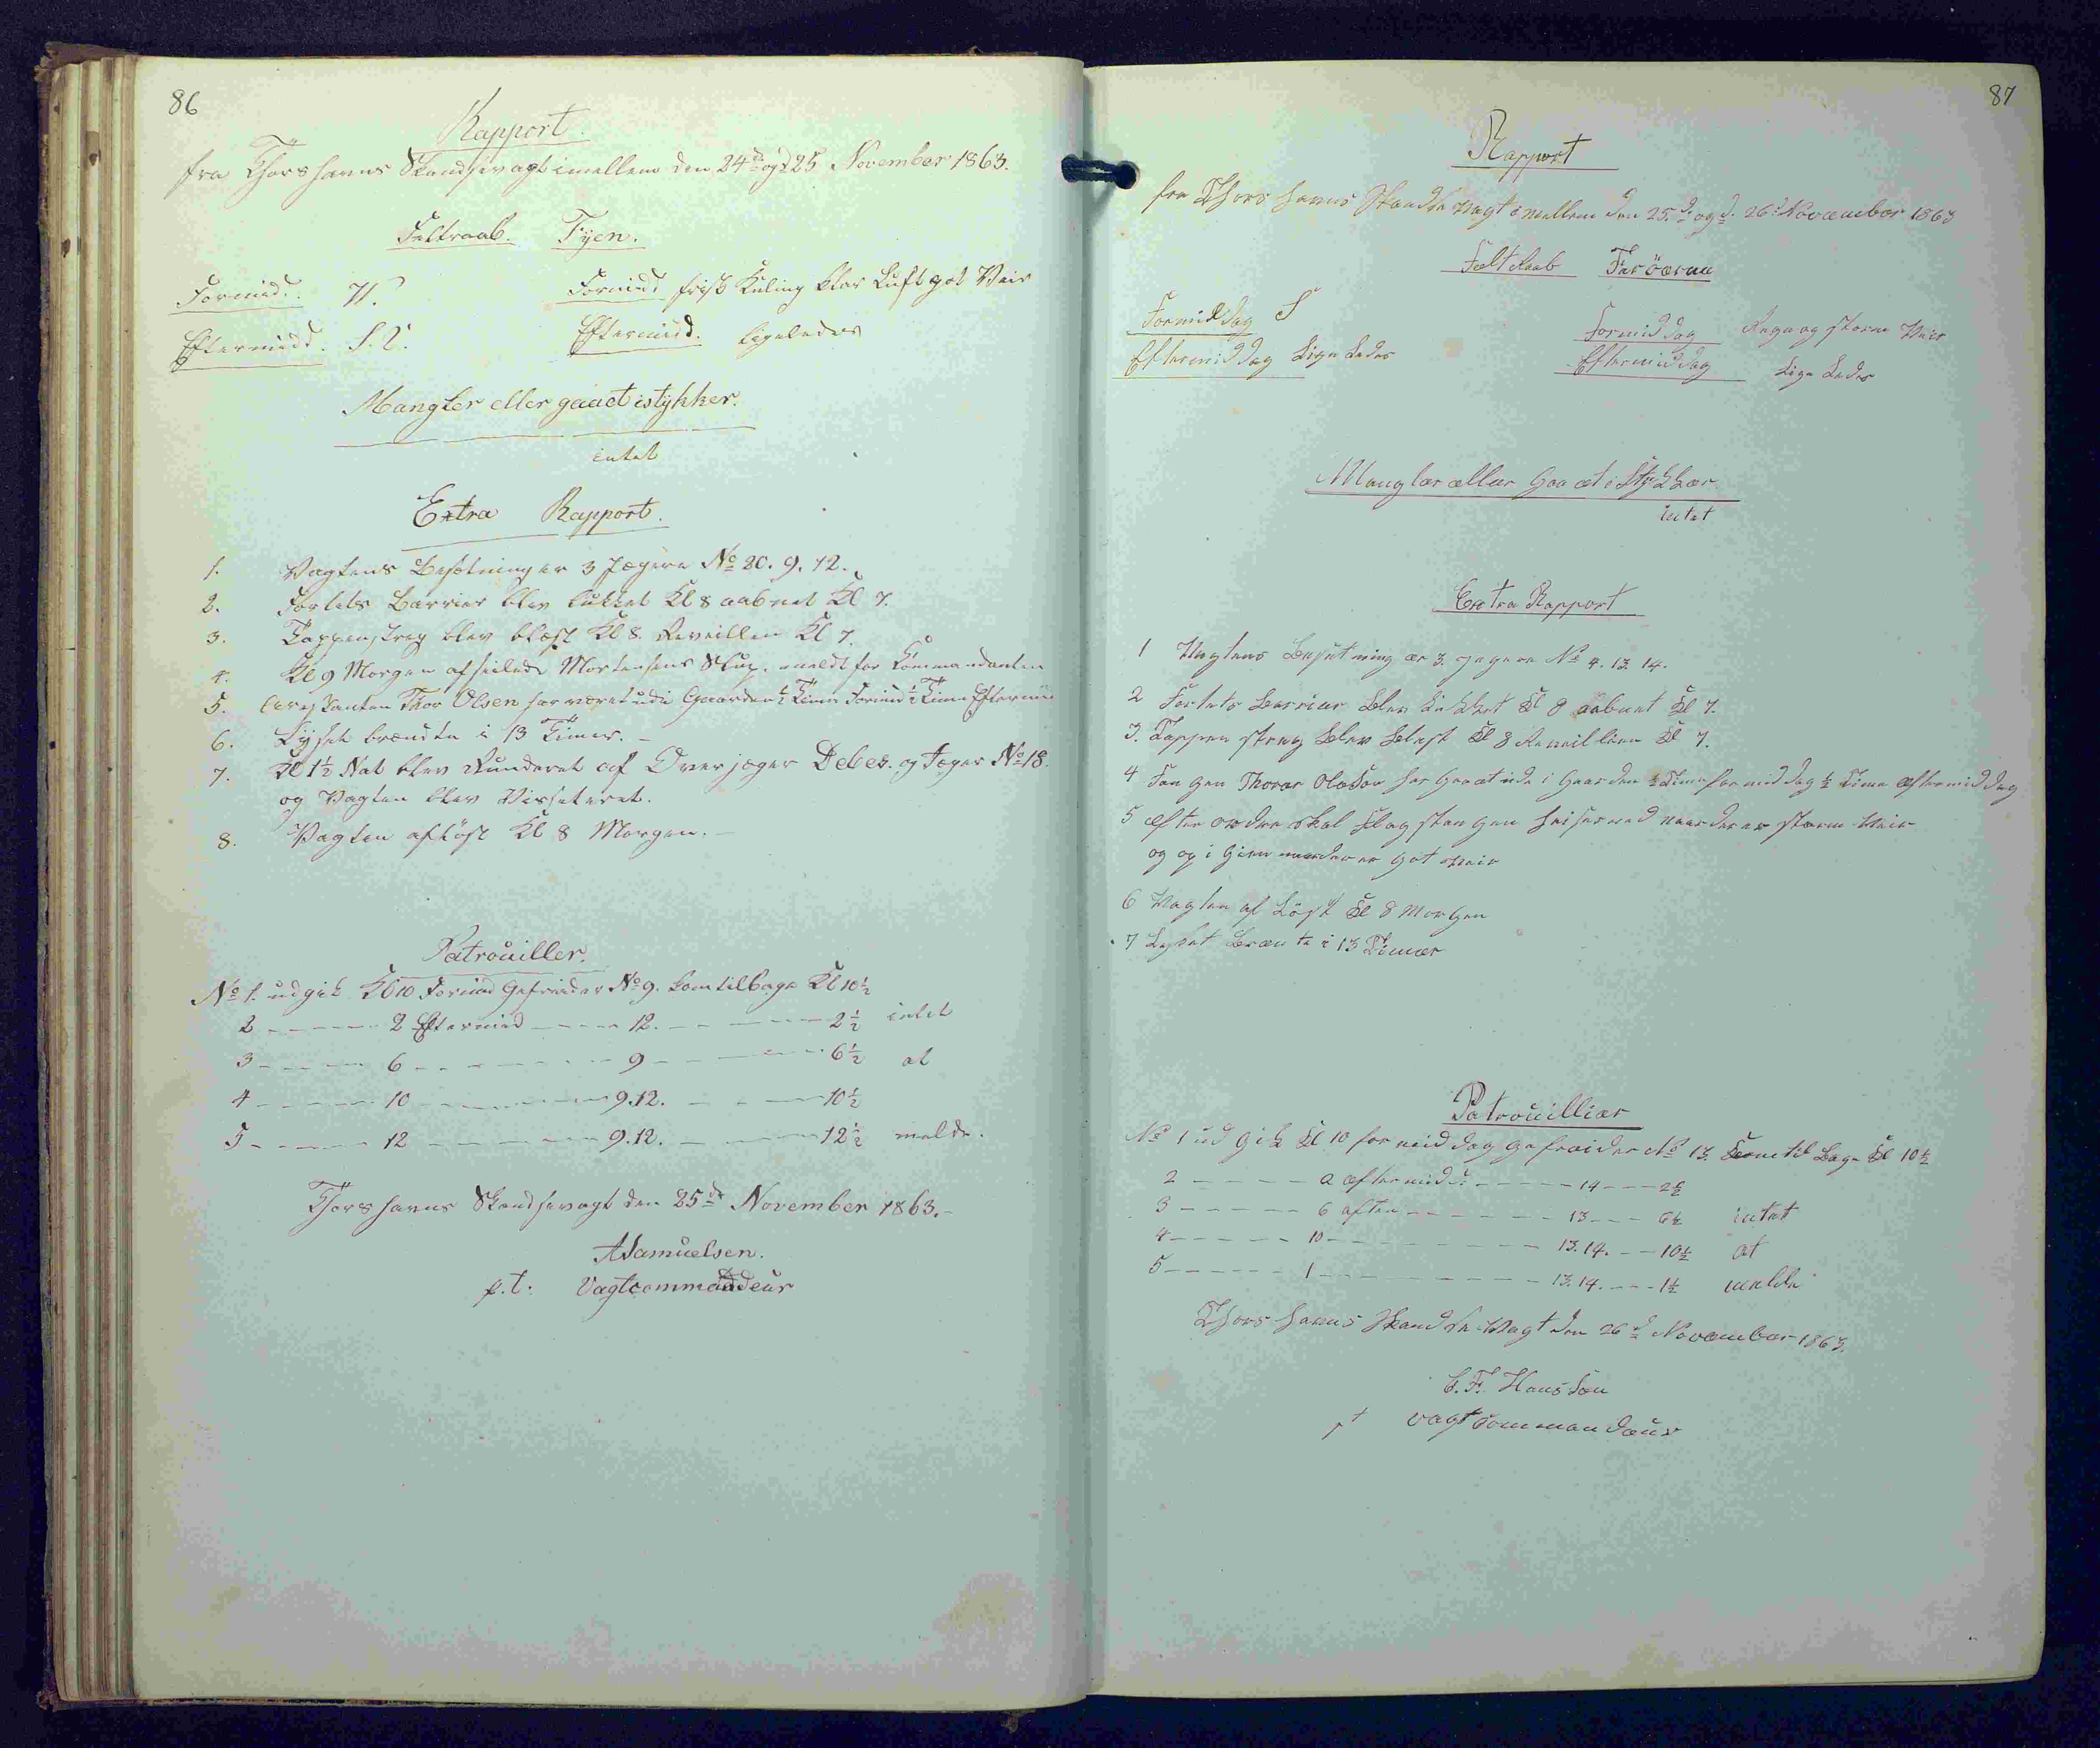 86
Rapport.
fra Thorshavns Skandsevagt imellem den 24de og 25 November 1863.
Feltraab. Fyen.
Formid. V. Formid frisk Kuling klar Luft got Veir
Eftermidd. S.V. Eftermidd. ligeledes
Mangler eller gaaet istykker.
intet
Extra Rapport.
1. Vagtens Besætning er 3 Jægere No 20. 9. 12.
2. Fortets Barrier blev lukket Kl 8 aabnet Kl 7.
3. Tappenstreg blev blæst Kl 8. Reveillen Kl 7.
4. Kl 9 Morgen afseilede Mortensens Slup. meldt for Kommandanten
5. Arestanten Thor Olsen har været ude i Gaarden ½ Time Formid ½ Time Eftermid
6. Lyset brændte i 13 Timer. –
7. Kl 1½ Nat blev Runderet af Overjæger Debes. og Jæger No 18.
og Vagten blev Visiteret.
8. Vagten afløst Kl 8 Morgen. –
Patrouiller.
No 1. udgik Kl 10 Formid Gefreider No 9. kom tilbage Kl 10½
2 - - - - - 2 Eftermid - - - - 12. - - - - - 2½ intet
3 - - - - - 6 - - - - - - 9 - - - - - 6½ at
4 - - - - - 10 - - - - - - 9.12. - - - - 10½
5 - - - - - 12 - - - - - - 9.12. - - - - 12½ melde.
Thorshavns Skandsevagt den 25de November 1863. –
A Samuelsen.
p.t. Vagtcommandeur
87
Rapport
fra Thors havns Skandse Vagt imellem den 25.d og d. 26d November 1863
Felt Raab Færöerne
Formiddag S Formiddag Regn og storm Veir
Eftermiddag Lige Ledes Eftermiddag Lige Ledes
Mangler eller Gaaet i Stykker
intet
Extra Rapport
1 Vagtens Besætning er 3. jægere No 4. 13. 14.
2 Fortets Barriær blev Lukket Kl 8 aabnet Kl 7.
3. Tappen streg blev blæst Kl 8 Reveillien Kl 7.
4 Fangen Thorar Oleson har Gaaet ude i Gaarden ½ Time formiddag ½ Time eftermiddag
5 efter ordre skal Flagstangen heises ned naar der er storm Veir
og op i Gien naar der er Got Veir
6 Vagten af Løst Kl 8 Morgen
7 Lyset Brænte i 13 Timer
Patrouillier
No 1 ud gik Kl 10 formiddag gefreider No 13. Kom til Bage Kl 10½
2 - - - - - 2 eftermid: - - - - - 14 - - - 2½
3 - - - - - 6 aften - - - - - - 13 - - - 6½ intet
4 - - - - - 10 - - - - - - - 13. 14. - - 10½ at
5 - - - - - 1 - - - - - - - 13. 14. - - - 1½ melde
Thors havns Skandse Vagt den 26d November 1863.
C. F. Hansson
pt Vagt Commandeur